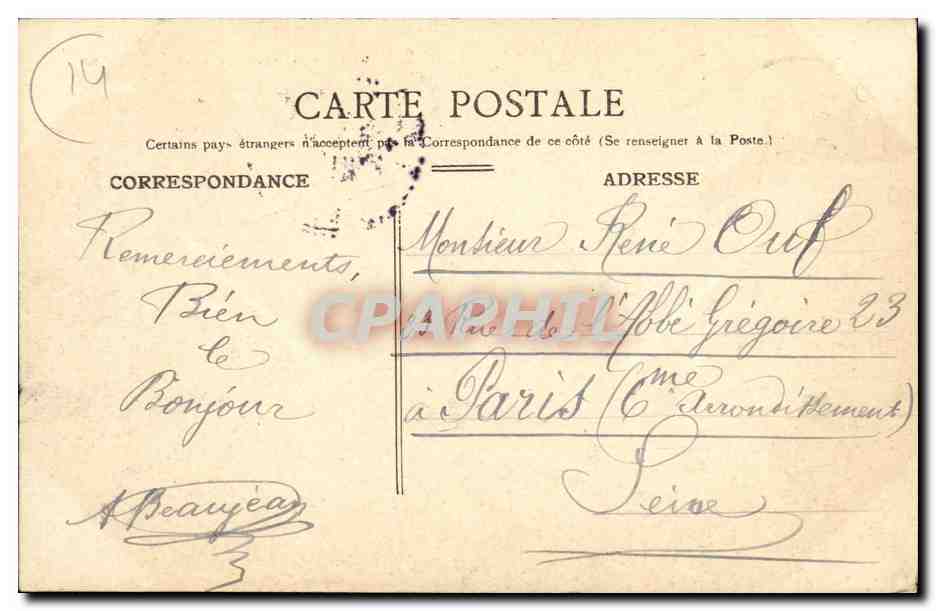 14
CARTE POSTALE
Certains pays étrangers n'acceptent pas la Correspondance de ce côté (Se renseigner à la Poste.)
CORRESPONDANCE
Remerciements,
Bien
le
Bonjour
A Beaujean
ADRESSE
Monsieur René Ouf
23 Rue de l'Abbé Grégoire 23
à Paris (6me Arrondissement)
Seine
CPAPHIL